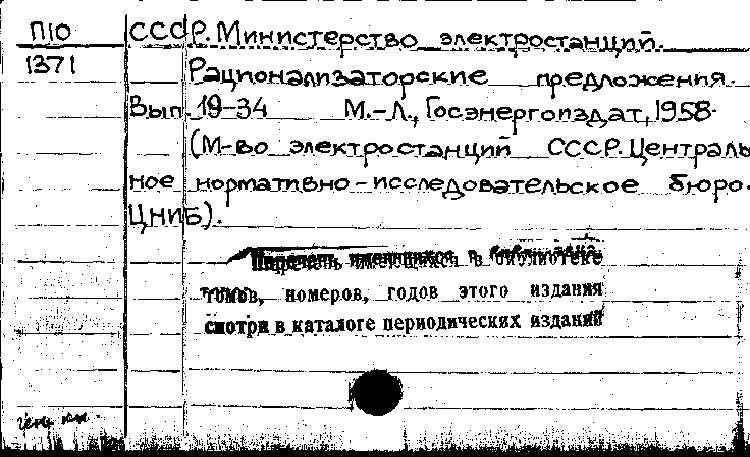 П10 СССР. Министерство электростанций.
1371 Рационализаторские предложения.
Вып. 19-34 М.-Л., Госэнергоиздат, 1958.
(М-во электростанций СССР. Централь
ное нормативно-исследовательское бюро.
ЦНИБ).
Перечень имеющихся в библиотеке
томов, номеров, годов этого издания
смотри в каталоге периодических изданий